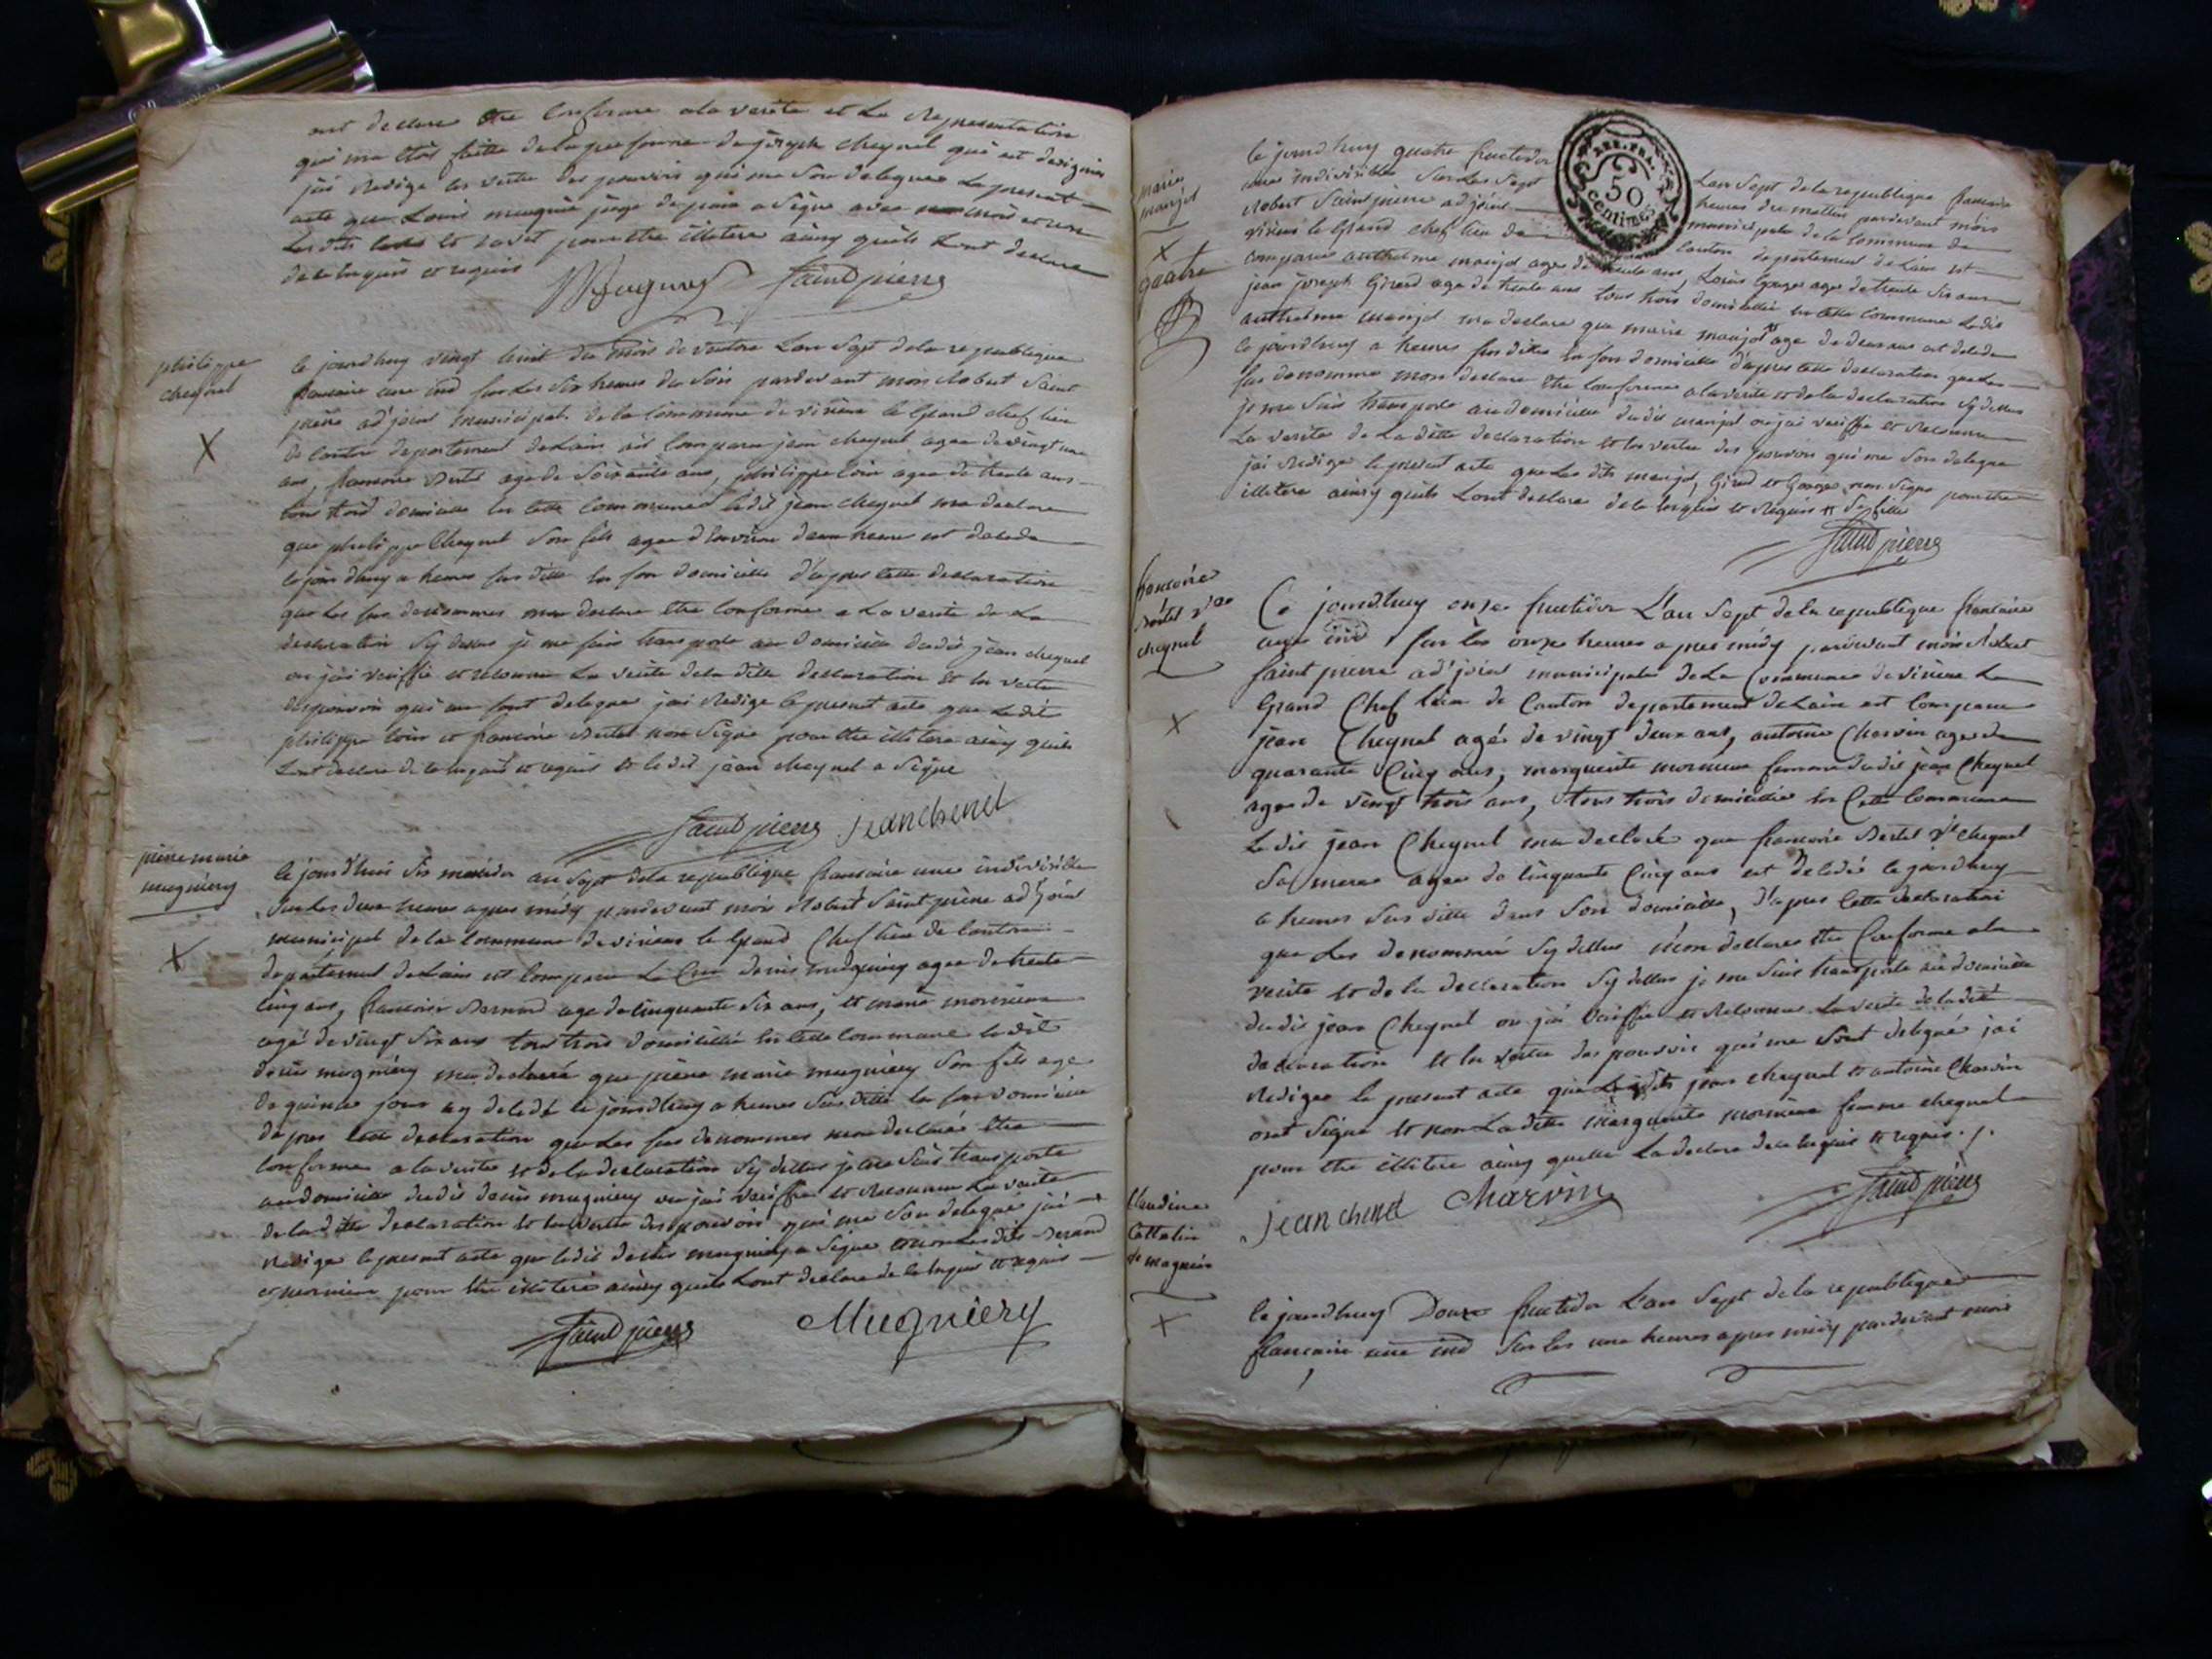 ont declare etre conforme a la verite et la Representation
qui ma etois faitte de la personne de joseph cheynel qui est designée
jai Redige en vertu des pouvoirs qui me son delegues Le present
acte que Louis mugnié juge de paix a Signe avec moi et non
Les dits et pour etre illitere ainsy quils Lont declare
de ce enquis et requis
Saint pierre
philippe
cheynel
X
le jourdhuy vingt huit du mois de ventose Lan Sept de la republique
francaise une ind sur les Six heures du Soir pardevant moi Robert Saint
pierre adjoint municipal de la commune de virieux le Grand chef lieu
de canton departement de Lain est comparu jean cheynel agee de vingt un
ans, francoise Bertet age de Soixante ans, philippe agee de trente ans
tous trois domicillie en cette commune Ledit jean cheynel ma declare
que philippe Cheynel Son fils agee denviron deux heures est decede
le jour dhuy a heures sus ditte en son domicille d'apres cette declaration
que Les sus denommes mon declare etre conforme a La verite de La
declaration Sy dessus je me suis transporte au domicille dudit jean cheynel
ou jai veriffie et reconnu La verite de la ditte declaration et en vertu
des pouvoirs qui me sont delegues jai Redige le present acte que Ledit
philippe et francoise Bertet non Signe pour etre illitere ainsy quils
Lont declare de ce enquis et requis et le dit jean cheynel a Signe
Saint pierre jean chenel
pierre marie
mugniery
X
le jourd'hui Six messidor an Sept de la republique francaise une indivisible
Sur Les deux heures apres midy pardevant moi Robert Saint pierre adjoint
municipal de la commune de virieux le Grand Chef lieu de canton
departement de Lain est comparu Le Cien denis mugniery agee de trente
cinq ans, francoise Bernard age de cinquante Six ans, et marie morniere
agé de vingt Six ans tous trois domicillié en cette commune le dit
denis mugniery ma declaré que pierre marie mugniery Son fils age
de quinze jour ey decedé le jourdhuy a heures Sus ditte en son domicille
dapres cette declaration que Les sus denommes mon declaré etre
conforme a la verite et de la declaration Sy dessus je me Suis transporte
au domicille dudit denis mugniery ou jai veriffie et Reconnu La verite
de la ditte declaration et en vertu des pouvoirs qui me Son delegué jai
Redige le present acte que ledit denis mugniery a Signe et non Les dits Bernard
et morniere pour etre illitere ainsy quils Lont declare de ce enquis et requis
Saint pierre Mugniery
marie
maujot
X
quatre
le jourdhuy quatre fructidor Lan Sept de la republique francaise
une indivisible Sur Les Sept heures du mattin pardevant moi
Robert Saint pierre adjoint municipale de la commune de
virieux le Grand chef lieu de canton departement de Lain est
comparu anthelme maujot age de trente ans, Louis Gouge age de trente Six ans
jean joseph Girod age de trente ans tous trois domicillie en cette commune Ledit
anthelme maujot ma declare que marie maujot age de deux ans est decede
le jourdhuy a heures sus dittes en son domicille d'apres cette declaration que Les
sus denomme mon declare etre conforme a la verite et de la declaration Sy dessus
je me Suis transporte au domicille dudit maujot ou jai veriffie et Reconnu
La verite de La ditte declaration et en vertu des pouvoirs qui me Son delegue
jai Redige le present acte que Les dits maujot, Girod et Gouge non Signe pour etre
illitere ainsy quils Lont declare de ce enquis et Requis Sa fille
Saint pierre
REP. FRA.
50
centimes
francoise
Bertet vve
cheynel
X
Ce jourd.huy onze fructidor L'an Sept de la republique francaise
une ind Sur les onze heures apres midy pardevant moi Robert
Saint pierre ad'joint municipale de La Commune de virieux Le
Grand Chef lieu de Canton departement de Lain est comparu
jean Cheynel agé de vingt deux ans, antoine Charvin agee de
quarante Cinq ans, marguerite morniere femme dudit jean Cheynel
agee de vingt trois ans, tous trois domicillie en Cette Commune
Le dit jean Cheynel ma declaré que francoise Bertet ve Cheynel
Sa mere agee de cinquante Cinq ans est decedé le jourdhuy
a heures Sus ditte dans Son domicille, d'apres cette declaration
que Les denommé Sy dessus mon declare etre Conforme a la
verite et de la declaration Sy dessus je me Suis transporte au domicille
dudit jean Cheynel ou jai veriffie et Reconnu La verite de la dite
declaration et en vertu des pouvoirs qui me Sont delegué jai
Rediger le present acte que Les dits jean cheynel et antoine Charvin
ont Signe et non La ditte marguerite morniere femme cheynel
pour etre illitere ainsy quelle La declare de ce enquis et requis ./.
jean chenel Charvin Saint pierre
Claudine
Cattelin
de mugnié
X
le jourdhuy Douze fructidor Lan Sept de la republique
francaise une ind Sur les une heures apres midy pardevant moi